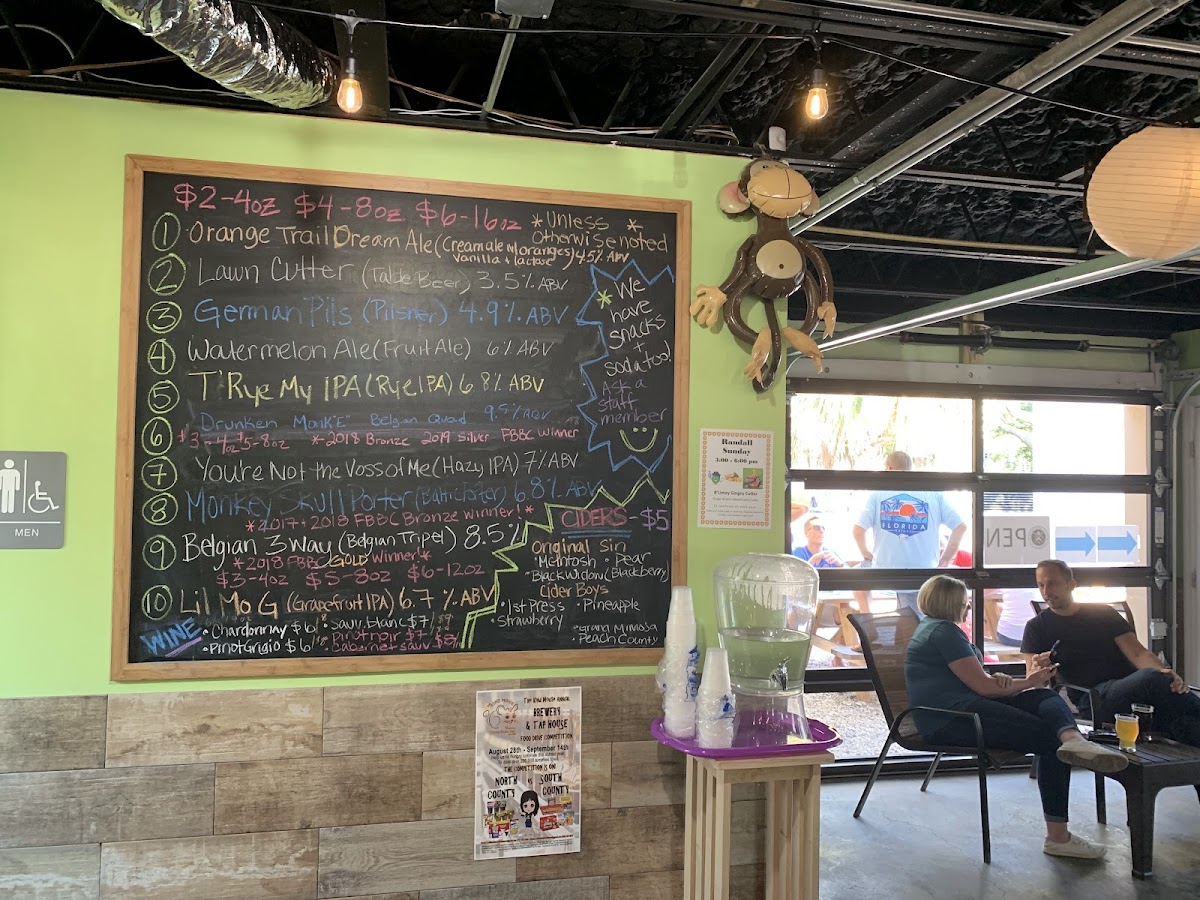 $2-4oz $4-8oz $6-16oz *Unless Otherwise noted*
1 Orange Trail Dream Ale (Cream ale w/ oranges, vanilla + lactose) 4.5% ABV
2 Lawn Cutter (Table Beer) 3.5% ABV
3 German Pils (Pilsner) 4.9% ABV
4 Watermelon Ale (Fruit Ale) 6% ABV
5 T'Rye My IPA (Rye IPA) 6.8% ABV
6 Drunken Monk'E" Belgian Quad 9.5% ABV
$3-4oz $5-8oz *2018 Bronze 2019 Silver FBBC Winner
7 You're Not the Voss of Me (Hazy IPA) 7% ABV
8 Monkey Skull Porter (Baltic Porter) 6.8% ABV
*2017 + 2018 FBBC Bronze Winner!*
9 Belgian 3 Way (Belgian Tripel) 8.5%
*2018 FBBC GOLD Winner*
$3-4oz $5-8oz $6-12oz
10 Lil Mo G (Grapefruit IPA) 6.7% ABV
WINE
•Chardonnay $6
•Sauv. blanc $7
•Pinot Grigio $6
•Pinot noir $7
•Cabernet sauv
*We have snacks + soda too!
Ask a staff member
CIDERS - $5
Original Sin
•McIntosh •Pear
•Black Widow (Blackberry)
Cider Boys
•1st Press •Pineapple
•Strawberry •Grand Mimosa
•Peach County
MEN
Randall
Sunday
3:00 - 6:00 pm
FLORIDA
OPEN
BREWERY
& TAP HOUSE
FOOD DRIVE COMPETITION
August 28th - September 14th
THE COMPETITION IS ON
NORTH COUNTY vs SOUTH COUNTY